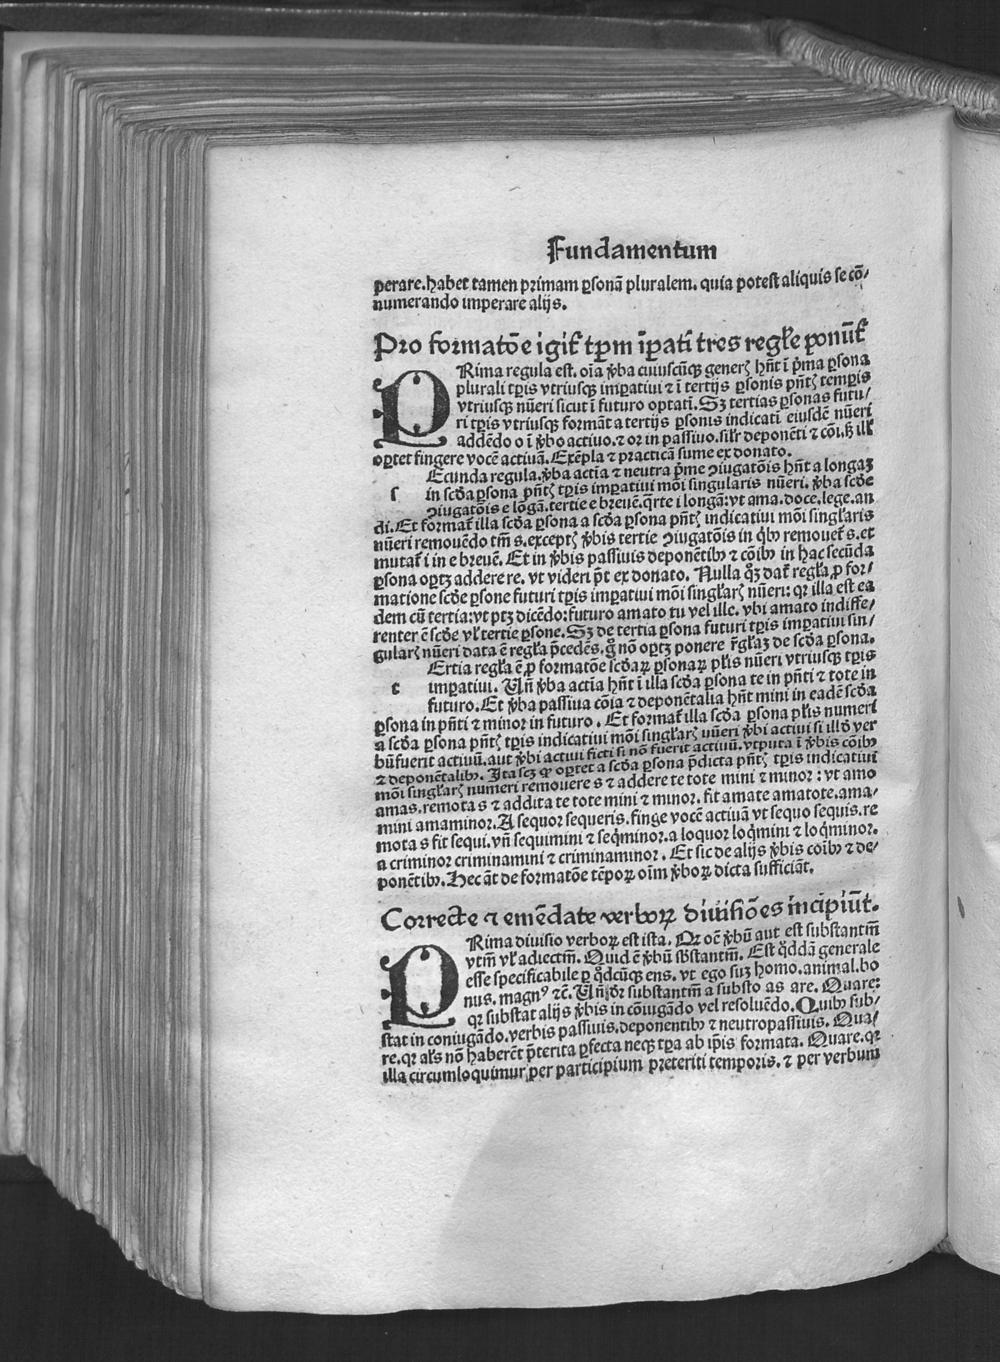 Fundamentum
perare. habet tamen primam ꝑsonã pluralem. quia potest aliquis se cõ⸗
numerando imperare alijs.
Pro formatõe igit̃ tꝑm ĩꝑati tres regl̃e ponũt̃
PRima regula est. oĩa ꝟba cuiuscũqꝫ generꝭ hñt ĩ pͥma ꝑsona
plurali tꝑis vtriusqꝫ imꝑatiui ⁊ ĩ tertijs ꝑsonis pñtꝭ temꝑis
vtriusqꝫ nũeri sicut ĩ futuro optati. Sꝫ tertias ꝑsonas futu⸗
ri tꝑis vtriusqꝫ formãt a tertijs ꝑsonis indicati eiusdẽ nũeri
addẽdo o ĩ ꝟbo actiuo. ⁊ or in passiuo. sil̃r deponẽti ⁊ cõi. ꝫ ill̃
oꝑtet fingere vocẽ actiuã. Exẽpla ⁊ practicã sume ex donato.
s Ecunda regula. ꝟba actĩa ⁊ neutra pͥme ꝯiugatõis hñt a longaꝫ
in scd̃a ꝑsona pñtꝭ tꝑis imꝑatiui mõi singularis nũeri. ꝟba scd̃e
ꝯiugatõis e lõgã. tertie e breuẽ. qͣrte i longã: vt ama. doce. lege. au
di. Et format̃ illa scd̃a ꝑsona a scd̃a ꝑsona pñtꝭ indicatiui mõi singl̃aris
nũeri remouẽdo tm̃ s. exceptꝭ ꝟbis tertie ꝯiugatõis in qͥbꝰ remouet̃ s. et
mutat̃ i in e breuẽ. Et in ꝟbis passiuis deponẽtibꝰ ⁊ cõibꝰ in hac secũda
ꝑsona oꝑtꝫ addere re. vt videri pt̃ ex donato. Nulla qͦꝫ dat̃ regl̃a ꝓ for⸗
matione scd̃e ꝑsone futuri tꝑis imꝑatiui mõi singl̃arꝭ nũeri: qꝛ illa est ea
dem cũ tertia: vt ptꝫ dicẽdo: futuro amato tu vel ille. vbi amato indiffe⸗
renter ẽ scd̃e vl̃ tertie ꝑsone. Sꝫ de tertia ꝑsona futuri tꝑis imꝑatiui sin⸗
gularꝭ nũeri data ẽ regl̃a p̃cedẽs. gͦ nõ oꝑtꝫ ponere r̃gl̃aꝫ de scd̃a ꝑsona.
t Ertia regl̃a ẽ ꝓ formatõe scd̃aꝝ ꝑsonaꝝ pl̃is nũeri vtriusqꝫ tꝑis
imꝑatiui. Uñ ꝟba actĩa hñt ĩ illa scd̃a ꝑsona te in pñti ⁊ tote in
futuro. Et ꝟba passiua cõia ⁊ deponẽtalia hñt mini in eadẽ scd̃a
ꝑsona in pñti ⁊ minor in futuro. Et format̃ illa scd̃a ꝑsona pl̃is numeri
a scd̃a ꝑsona pñtꝭ tꝑis indicatiui mõi singl̃arꝭ nũeri ꝟbi actiui si illd̃ ver
bũ fuerit actiuũ. aut ꝟbi actiui ficti si nõ fuerit actiuũ. vtputa ĩ ꝟbis cõibꝰ
⁊ deponẽtalibꝰ. Ita scꝫ ꝙ oꝑtet a scd̃a ꝑsona p̃dicta pñtꝭ tꝑis indicatiui
mõi singl̃arꝭ numeri remouere s ⁊ addere te tote mini ⁊ minor: vt amo
amas. remota s ⁊ addita te tote mini ⁊ minor. fit amate amatote. ama⸗
mini amaminor. A sequor sequeris. finge vocẽ actiuã vt sequo sequis. re
mota s fit sequi. vñ sequimini ⁊ seqͥminor. a loquor loqͥmini ⁊ loqͥminor.
a criminor criminamini ⁊ criminaminor. Et sic de alijs ꝟbis cõibꝰ ⁊ de⸗
ponẽtibꝰ. Hec aũt de formatõe tẽpoꝝ oĩm ꝟboꝝ dicta sufficiãt.
Correcte ⁊ emẽdate verboꝝ diuisiões incipiũt.
PRima diuisio verboꝝ est ista. Qꝛ oẽ ꝟbũ aut est substantĩm
vtm̃ vl̃ adiectm̃. Quid ẽ ꝟbũ sb̃stantm̃. Est qͦddã generale
esse specificabile ꝑ qͦdcũqꝫ ens. vt ego suꝫ homo. animal. bo
nus. magnꝰ ⁊c̃. Uñ dr̃ substantm̃ a substo as are. Quare:
qꝛ substat alijs ꝟbis in cõiugãdo vel resoluẽdo. Quibꝰ sub⸗
stat in coniugãdo. verbis passiuis. deponentibꝰ ⁊ neutropassiuis. Qua⸗
re. qꝛ al̃s nõ haberẽt p̃terita ꝑfecta neqꝫ tꝑa ab ip̃is formata. Quare. qꝛ
illa circumloquimur ꝑer participium preteriti temporis. ⁊ per verbum